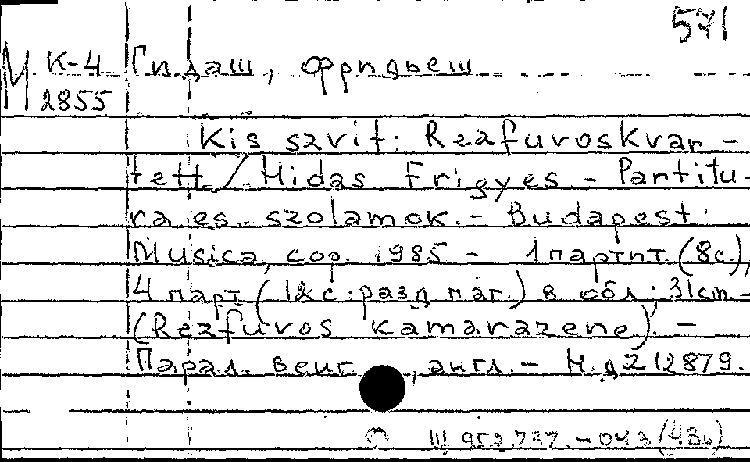 571
М К-4 Гидаш, Фридьеш
2855
Kis szvit: Rezfuvoskvar-
tett / Hidas Frigyes. - Partitu-
ra es szolamok. - Budapest:
Musica, cop. 1985 - 1 партит. (8с.),
4 парт (12с. разд паг.) в обл; 31cm -
(Rezfuvos kamarazene) -
Парал. венг , англ. - Н.д Z 12879.